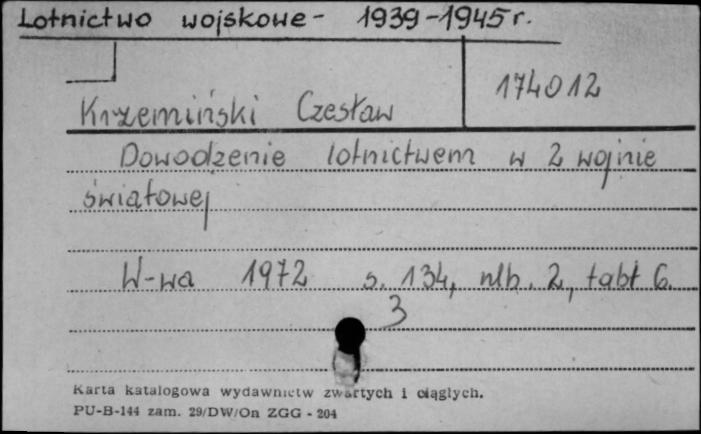 Lotnictwo wojskowe - 1939-1945 r.
174012
Krzemiński Czesław
Dowodzenie lotnictwem w 2 wojnie
światowej
W-wa 1972 s. 134, nlb. 2, tabl 6.
3
Karta katalogowa wydawnictw zwartych i ciągłych.
PU-B-144 zam. 29/DW/On ZGG - 204